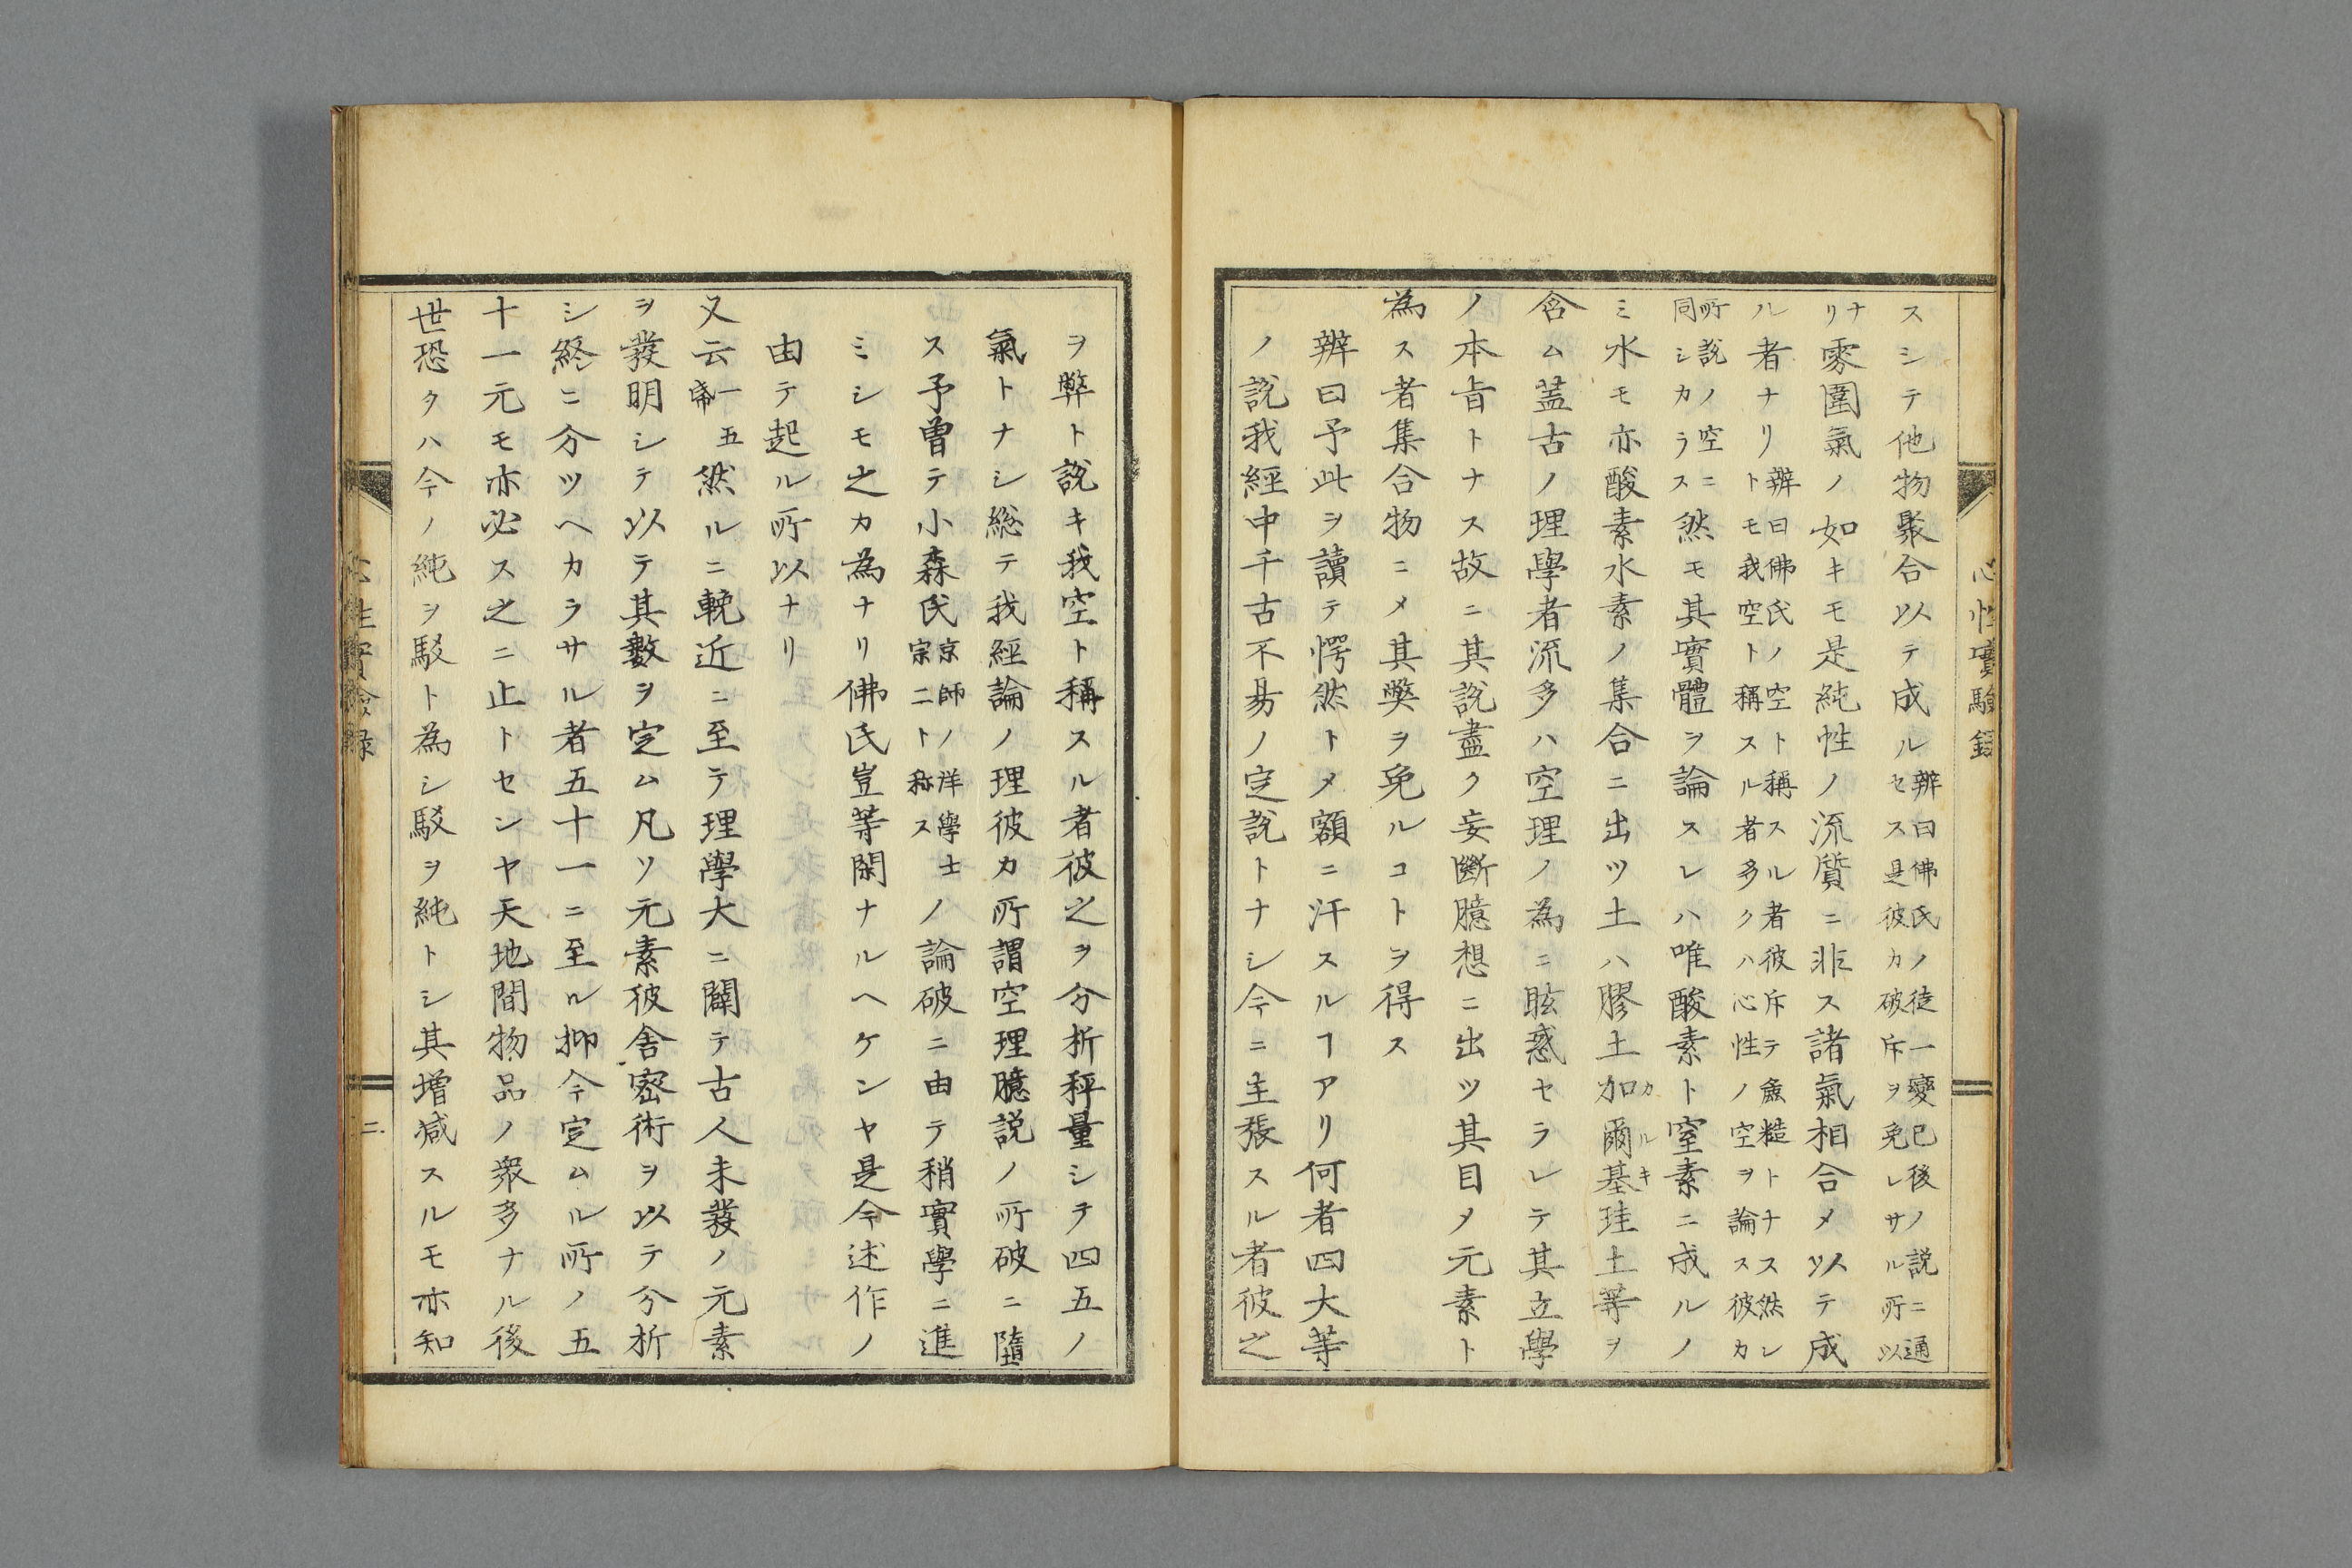 心性實驗録
スシテ他物聚合以テ成ルセス辨曰佛氏ノ徒一變已後ノ説ニ通是彼カ破斥ヲ免レサル所以
ナリ雰圍氣ノ如キモ是純性ノ流質ニ非ス諸氣相合メ以テ成
ル者ナリ辨曰佛氏ノ空ト稱スル者彼斥テ麁糙トナス然レトモ我空ト稱スル者多クハ心性ノ空ヲ論ス彼カ
所説ノ空ニ同シカラス然モ其實體ヲ論スレハ唯酸素ト窒素ニ成ルノ
ミ水モ亦酸素水素ノ集合ニ出ツ土ハ膠土加爾基カルキ珪土等ヲ
含ム葢古ノ理學者流多ハ空理ノ為ニ眩惑セラレテ其立學
ノ本旨トナス故ニ其説盡ク妄斷臆想ニ出ツ其目メ元素ト
為ス者集合物ニメ其弊ヲ免ルコトヲ得ス
辨曰予此ヲ讀テ愕然トメ額ニ汗スルヿアリ何者四大等
ノ説我經中千古不易ノ定説トナシ今ニ主張スル者彼之
ヲ弊ト説キ我空ト稱スル者彼之ヲ分析秤量シテ四五ノ
氣トナシ総テ我經論ノ理彼カ所謂空理臆説ノ所破ニ墮
ス予曽テ小森氏京師ノ洋學士宗ニト称スノ論破ニ由テ稍實學ニ進
ミシモ之カ為ナリ佛氏豈等閑ナルヘケンヤ是今述作ノ
由テ起ル所以ナリ
又云一五帝然ルニ輓近ニ至テ理學大ニ闢テ古人未發ノ元素
ヲ發明シテ以テ其數ヲ定ム凡ソ元素彼舎密術ヲ以テ分析
シ終ニ分ツヘカラサル者五十一ニ至ル抑今定ムル所ノ五
十一元モ亦必ス之ニ止トセンヤ天地間物品ノ衆多ナル後
世恐クハ今ノ純ヲ駁ト為シ駁ヲ純トシ其増减スルモ亦知
心性實驗録
二